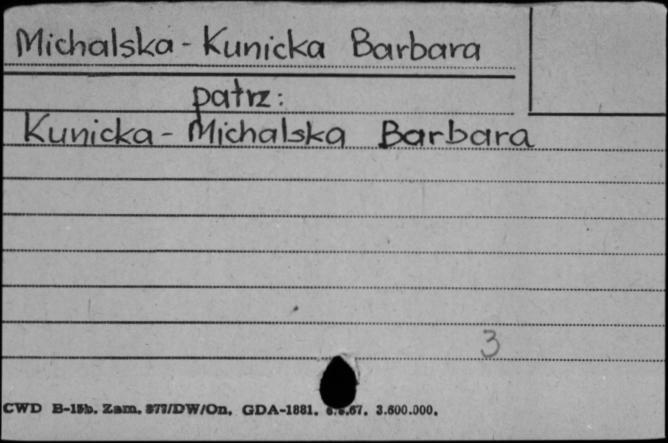 Michalska - Kunicka Barbara
patrz:
Kunicka - Michalska Barbara
3
CWD B-15b. Zam. 877/DW/On. GDA-1881. 3.600.000.